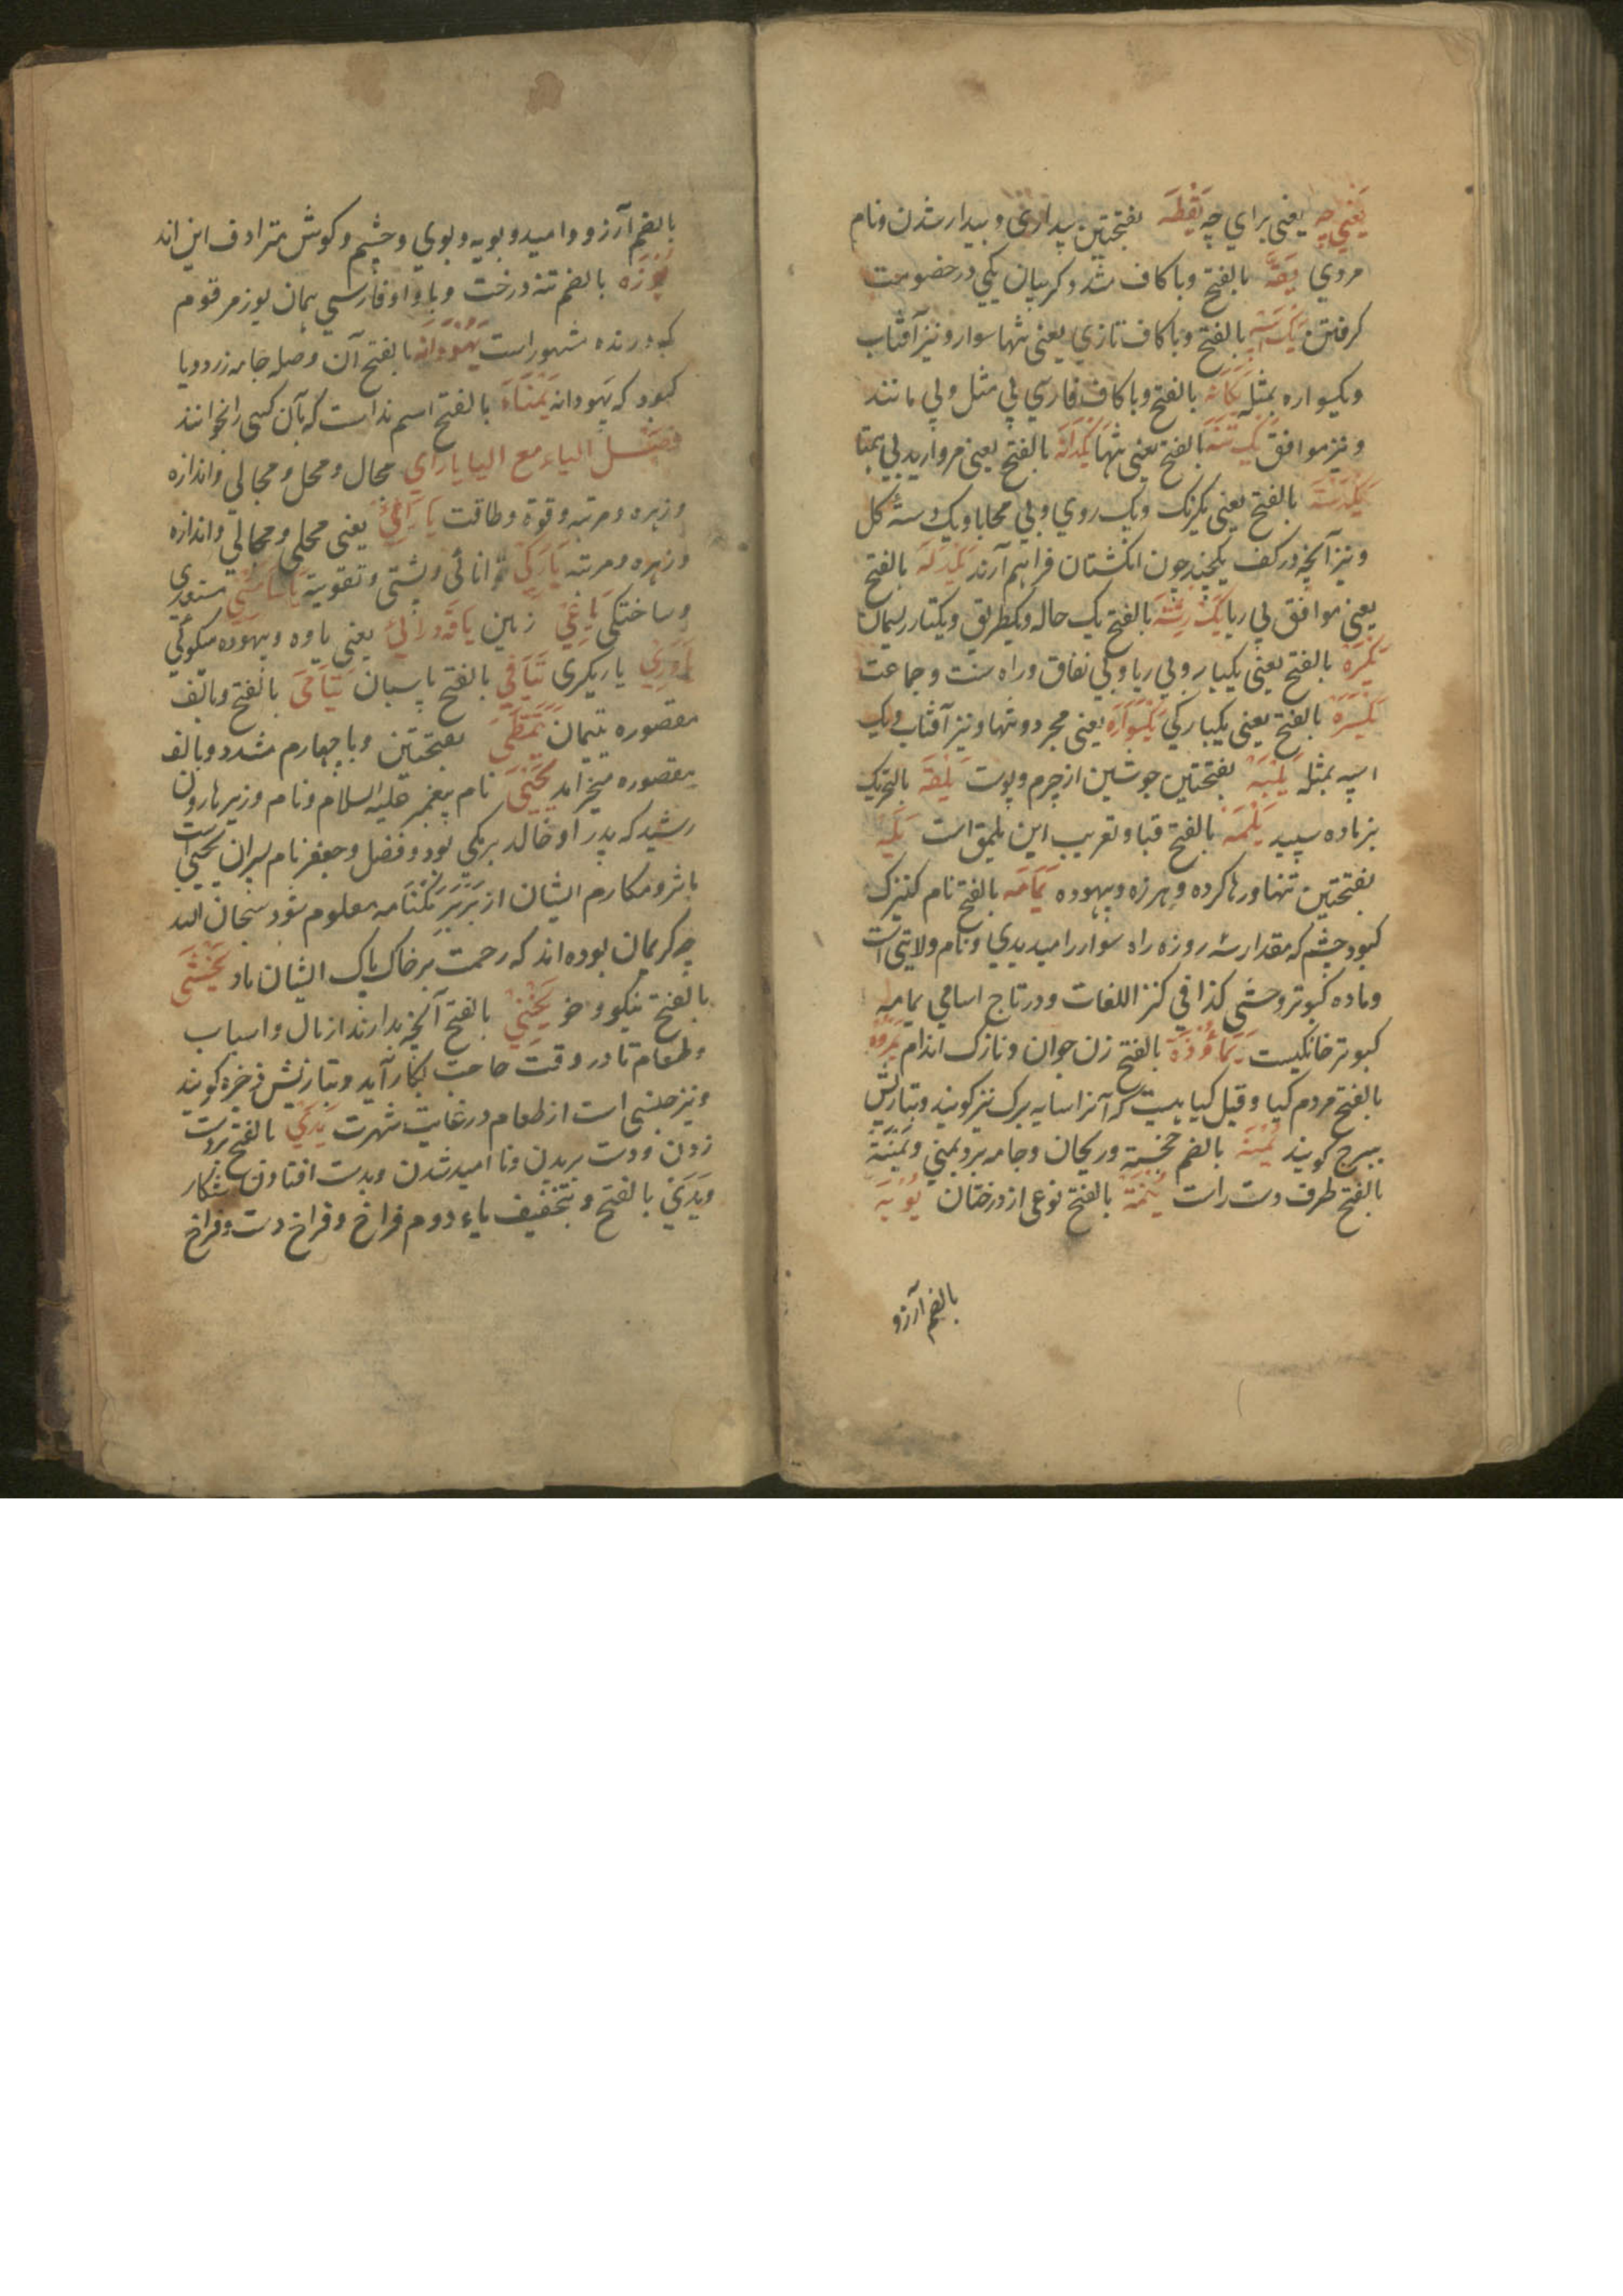 یعنی چه یعنی برای چه یقظه بفتحتین بیداری و بیدار شدن و نام
مردی یقه بالفتح و با کاف مشدد کریبان یکی در خصومت
کرفتن یک اسپه بالفتح و با کاف تازی یعنی تنها سوار و نیز آفتاب
و یکسواره بمثله یکانه بالفتح و با کاف فارسی بی مثل و بی مانند
و نیز موافق یک تنه بالفتح یعنی تنها یکدانه بالفتح یعنی مروارید بی همتا
یکدسته بالفتح یعنی یکرنک و یک روی و بی محابا و یک دسته کل
و نیز آنچه در کف یکچند چون انکشتان فراهم آرند یکدله بالفتح
یعنی موافق بی ریا یک رشته بالفتح یک حاله و یکطریق و یکتار ریسمان
یکره بالفتح یعنی یکبار و بی ریا و بی نفاق و راه سنت و جماعت
یکسره بالفتح یعنی یکبارکی یکسواره یعنی مجرد و تنها و نیز آفتاب و یک
اسپه بمثله یلبه بفتحتین جوشین از چرم و پوست یلقه بالتحریک
بز ماده سپید یلمه بالفتح قبا و تعریب این یلمق است یله
بفتحتین تنها و رها کرده و هرزه و بیهوده یمامه بالفتح نام کنیزک
کبود چشم که مقدار سه روزه راه سوار را میدیدی و نام ولایتی است
و ماده کبوتر وحشی کذا فی کنز اللغات و در تاج اسامی یمامه
کبوتر خانکیست یمأوذه بالفتح زن جوان و نازک اندام یبروه
بالفتح مردم کیا و قیل کیاهیست که آنرا سایه برک نیز کویند و بتازیش
یبروح کویند یمنه بالضم خجسته و ریحان و جامه برد یمنی و یمنة
بالفتح طرف دست راست ینمه بالفتح نوعی از درختان یوبه
بالضم آرزو
بالضم آرزو و امید و بویه و بوی و چشم و کوش مترادف این اند
یوزه بالضم تنه درخت و با واو فارسی همان یوز مرقوم
که درنده مشهور است یهودانه بالفتح آن وصله جامه زرد و یا
کبود که یهودانه یمناه بالفتح اسم نداست که بآن کسی را نخوانند
فصل الیاء مع الیا یارای مجال و محل و مجالی و اندازه
و زهره و مرتبه و قوة و طاقت یارائی یعنی محلی و مجالی و اندازه
و زهره و مرتبه یارکی توانائی و پشتی و تقویت یاسامشی مستعدی
و ساختکی یاغی زمین یافه درائی یعنی یاوه و بیهوده میکوئی
یاوری یاریکری یتاقی بالفتح پاسبان یتامی بالفتح و بالف
مقصوره یتیمان یتمطی بفتحتین و با چهارم مشدد و بالف
مقصوره میخرامد یحیی نام پیغمبر علیه السلام و نام وزیر هارون
رشید که پدر او خالد برمکی بود و فضل و جعفر نام پسران یحیی است
مآثر و مکارم ایشان از برمکنامه معلوم شود سبحان الله
چه کریمان بوده اند که رحمت بر خاک پاک ایشان باد یخشی
بالفتح نیکو و خو یخنی بالفتح آنچه بدارند از مال و اسباب
و طعام تا در وقت حاجت بکار آید و بتازیش ذخیره کویند
و نیز جنسی است از طعام در غایت شهرت یدی بالفتح بر دست
زدن و دست بریدن و نا امید شدن و بدست افتادن شکار
و یدی بالفتح و بتخفیف یاء دوم فراخ و فراخ دست و فراخ